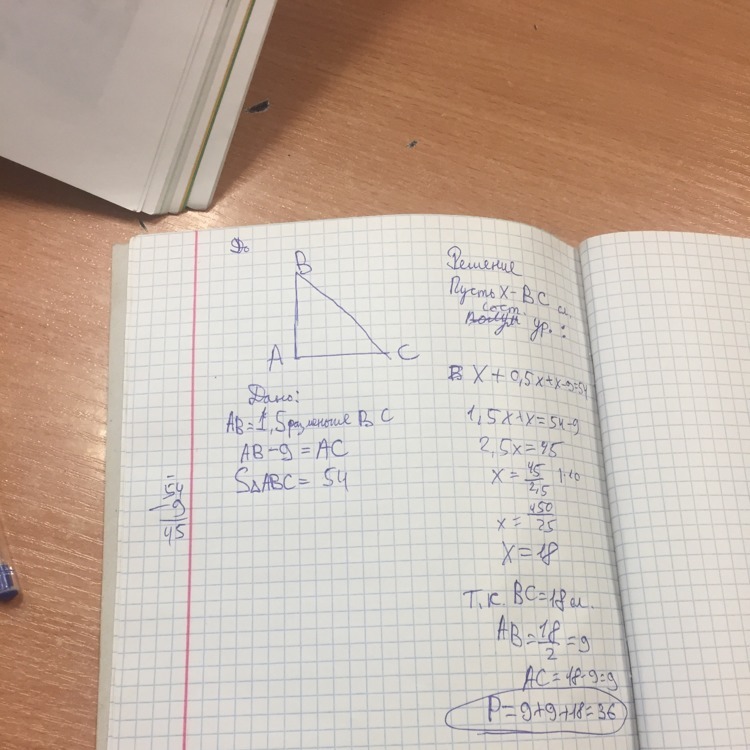 До
B
A
C
Дано:
AB=1,5 раз меньше BC
AB-9=AC
S△ABC= 54
54
9
45
Решение
Пусть X-BC и
сост.
ур.:
X+0,5x+x-9=54
1,5x+x=54-9
2,5x=45
x=45/2,5 |·10
x=450/25
X=18
Т.К. BC=18 и.
AB=18/2=9
AC=18-9=9
P=9+9+18=36